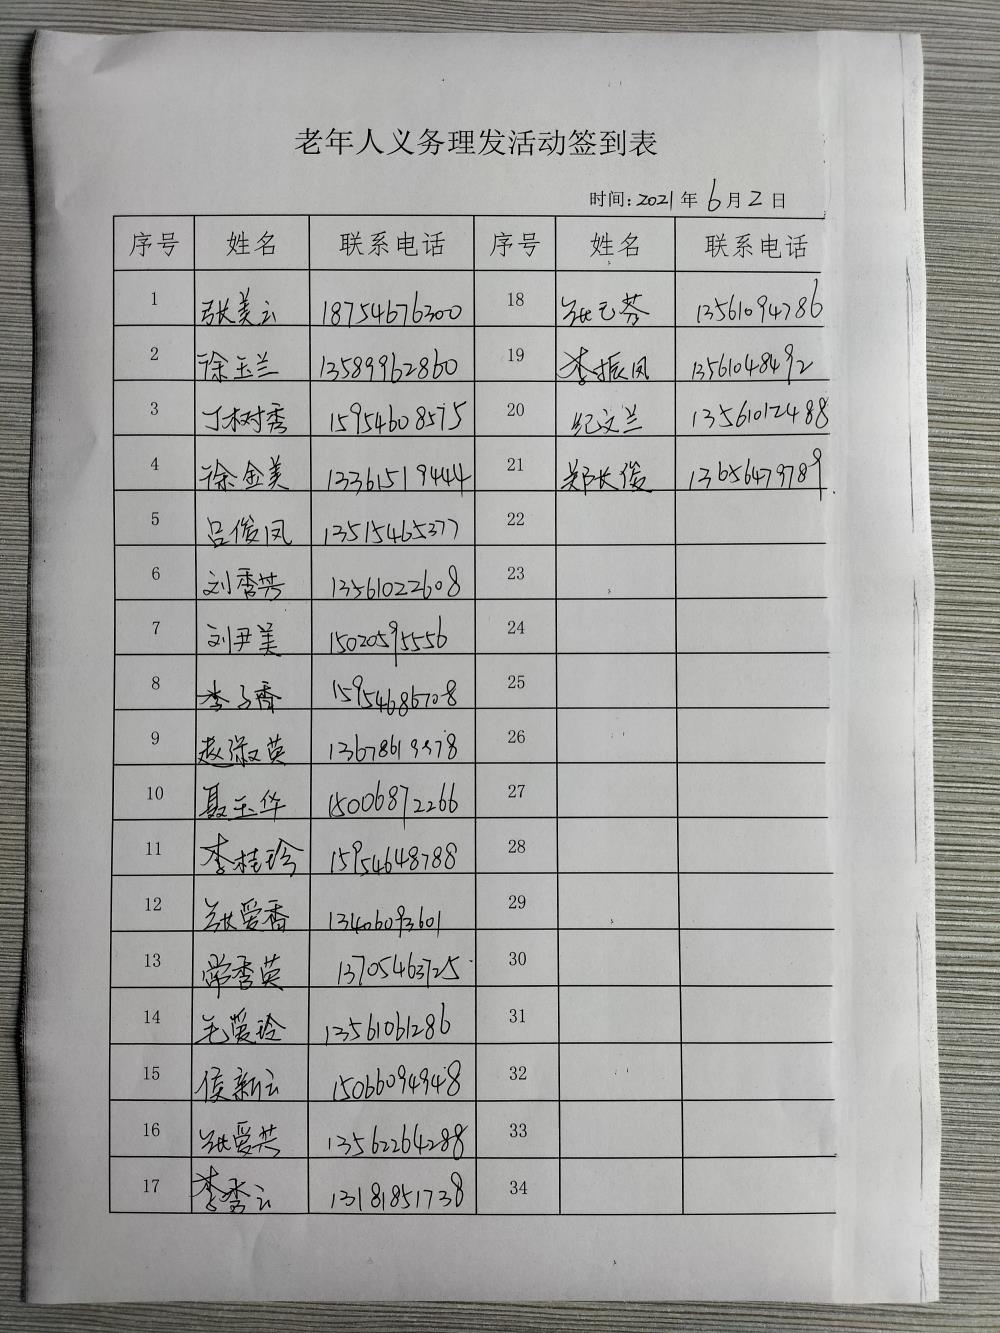 老年人义务理发活动签到表
时间: 2021 年 6 月 2 日
序号 姓名 联系电话 序号 姓名 联系电话
1 张美云 18754676300 18 张已芬 13561094786
2 徐玉兰 13589962860 19 李振凤 13561048492
3 丁树秀 15954608575 20 纪文兰 13561012488
4 徐金美 13361519444 21 郑长俊 13656479789
5 吕俊凤 13515465377 22
6 刘秀芳 13561022608 23
7 刘尹美 15020595556 24
8 李子香 15954686708 25
9 赵淑英 26
10 聂玉华 15006872266 27
11 李桂珍 15954648788 28
12 张爱香 13406093601 29
13 常秀英 13705463725 30
14 毛爱玲 13561061286 31
15 侯新云 15066094948 32
16 张爱英 13562264288 33
17 李秀云 13181851738 34